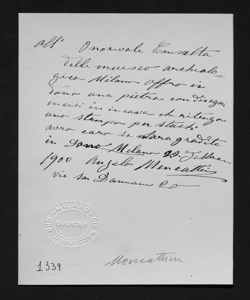 all' Onorevole Consulta
della museo archeolo
gica Milano offro in
dono una pietra con disegni
incisi in incavo che ritengo
uno stampo per stucchi
avrò caro se sarà gradita
in dono Milano 22 Febbraio
1900 Angelo Mencattini
via San Damiano 20
1339
Mencattini